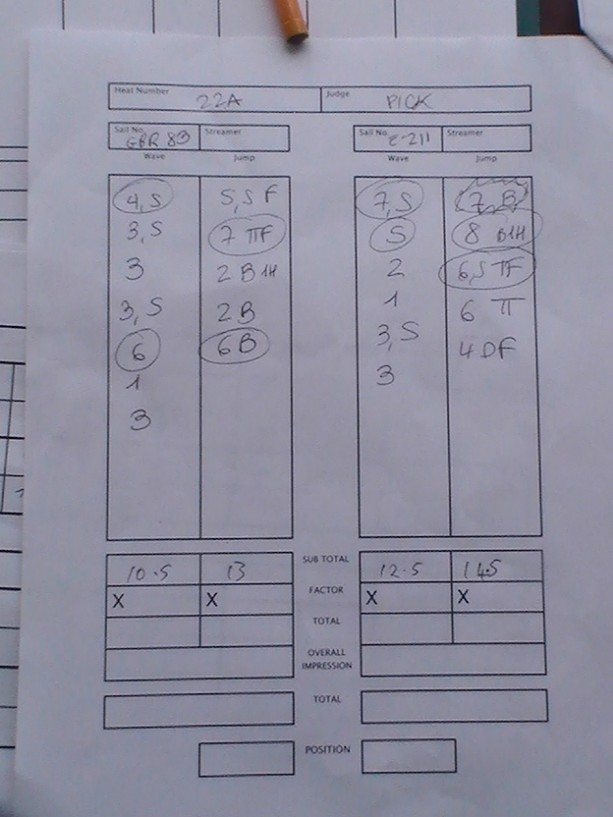 Heat Number 22A Judge PICK
Sail No. GBR 83 Streamer Sail No. E-211 Streamer
Wave Jump Wave Jump
4,5 5,5 F 7,5 7 B
3,5 7 ΠF 5 8 B1H
3 2 B 1H 2 6,5 ΠF
3,5 2B 1 6 Π
6 6B 3,5 4 DF
1 3
3
10.5 13 SUB TOTAL 12.5 14.5
X X FACTOR X X
TOTAL
OVERALL
IMPRESSION
TOTAL
POSITION